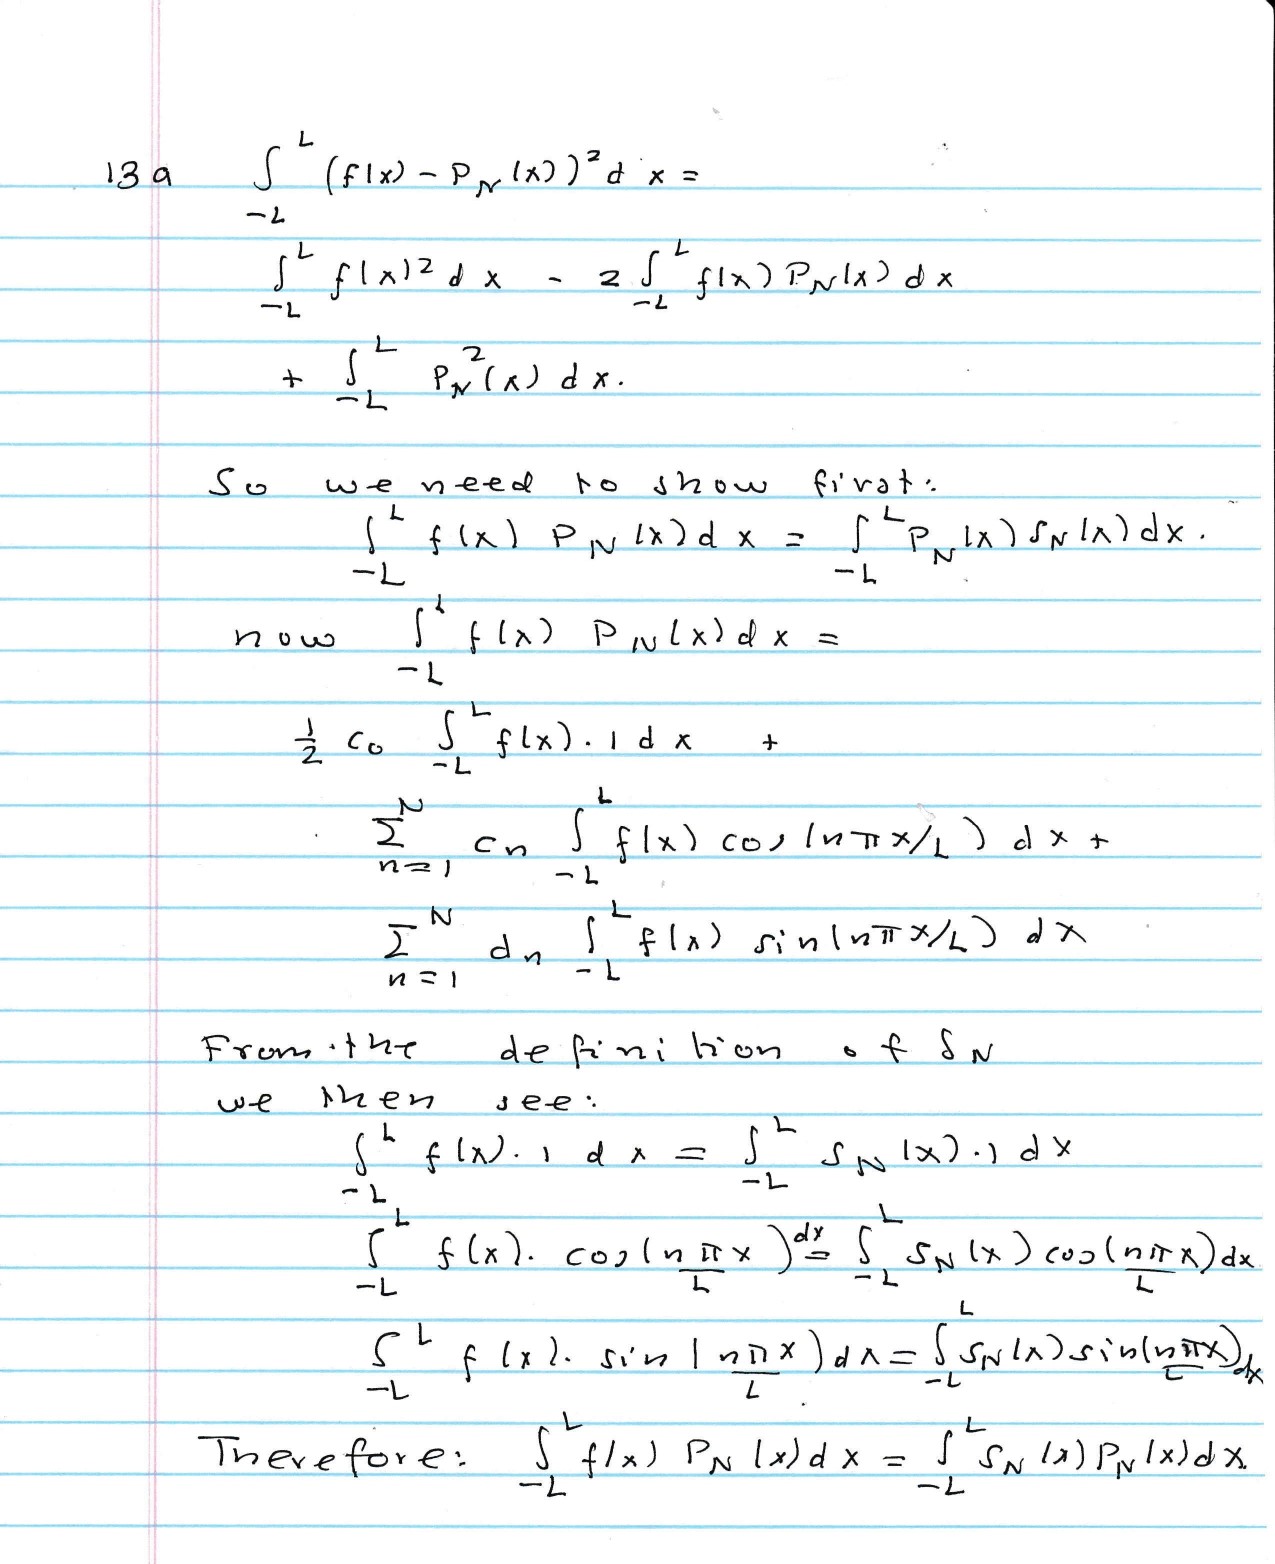 13a ∫_{-L}^{L} (f(x) - P_N(x))² dx =
∫_{-L}^{L} f(x)² dx - 2 ∫_{-L}^{L} f(x) P_N(x) dx
+ ∫_{-L}^{L} P_N²(x) dx.
So we need to show first:
∫_{-L}^{L} f(x) P_N(x) dx = ∫_{-L}^{L} P_N(x) S_N(x) dx.
now ∫_{-L}^{L} f(x) P_N(x) dx =
½ c₀ ∫_{-L}^{L} f(x)·1 dx +
Σ_{n=1}^{N} c_n ∫_{-L}^{L} f(x) cos(nπx/L) dx +
Σ_{n=1}^{N} d_n ∫_{-L}^{L} f(x) sin(nπx/L) dx
From the definition of S_N
we then see:
∫_{-L}^{L} f(x)·1 dx = ∫_{-L}^{L} S_N(x)·1 dx
∫_{-L}^{L} f(x)·cos(nπx/L) dx = ∫_{-L}^{L} S_N(x) cos(nπx/L) dx
∫_{-L}^{L} f(x)·sin(nπx/L) dx = ∫_{-L}^{L} S_N(x) sin(nπx/L) dx
Therefore: ∫_{-L}^{L} f(x) P_N(x) dx = ∫_{-L}^{L} S_N(x) P_N(x) dx